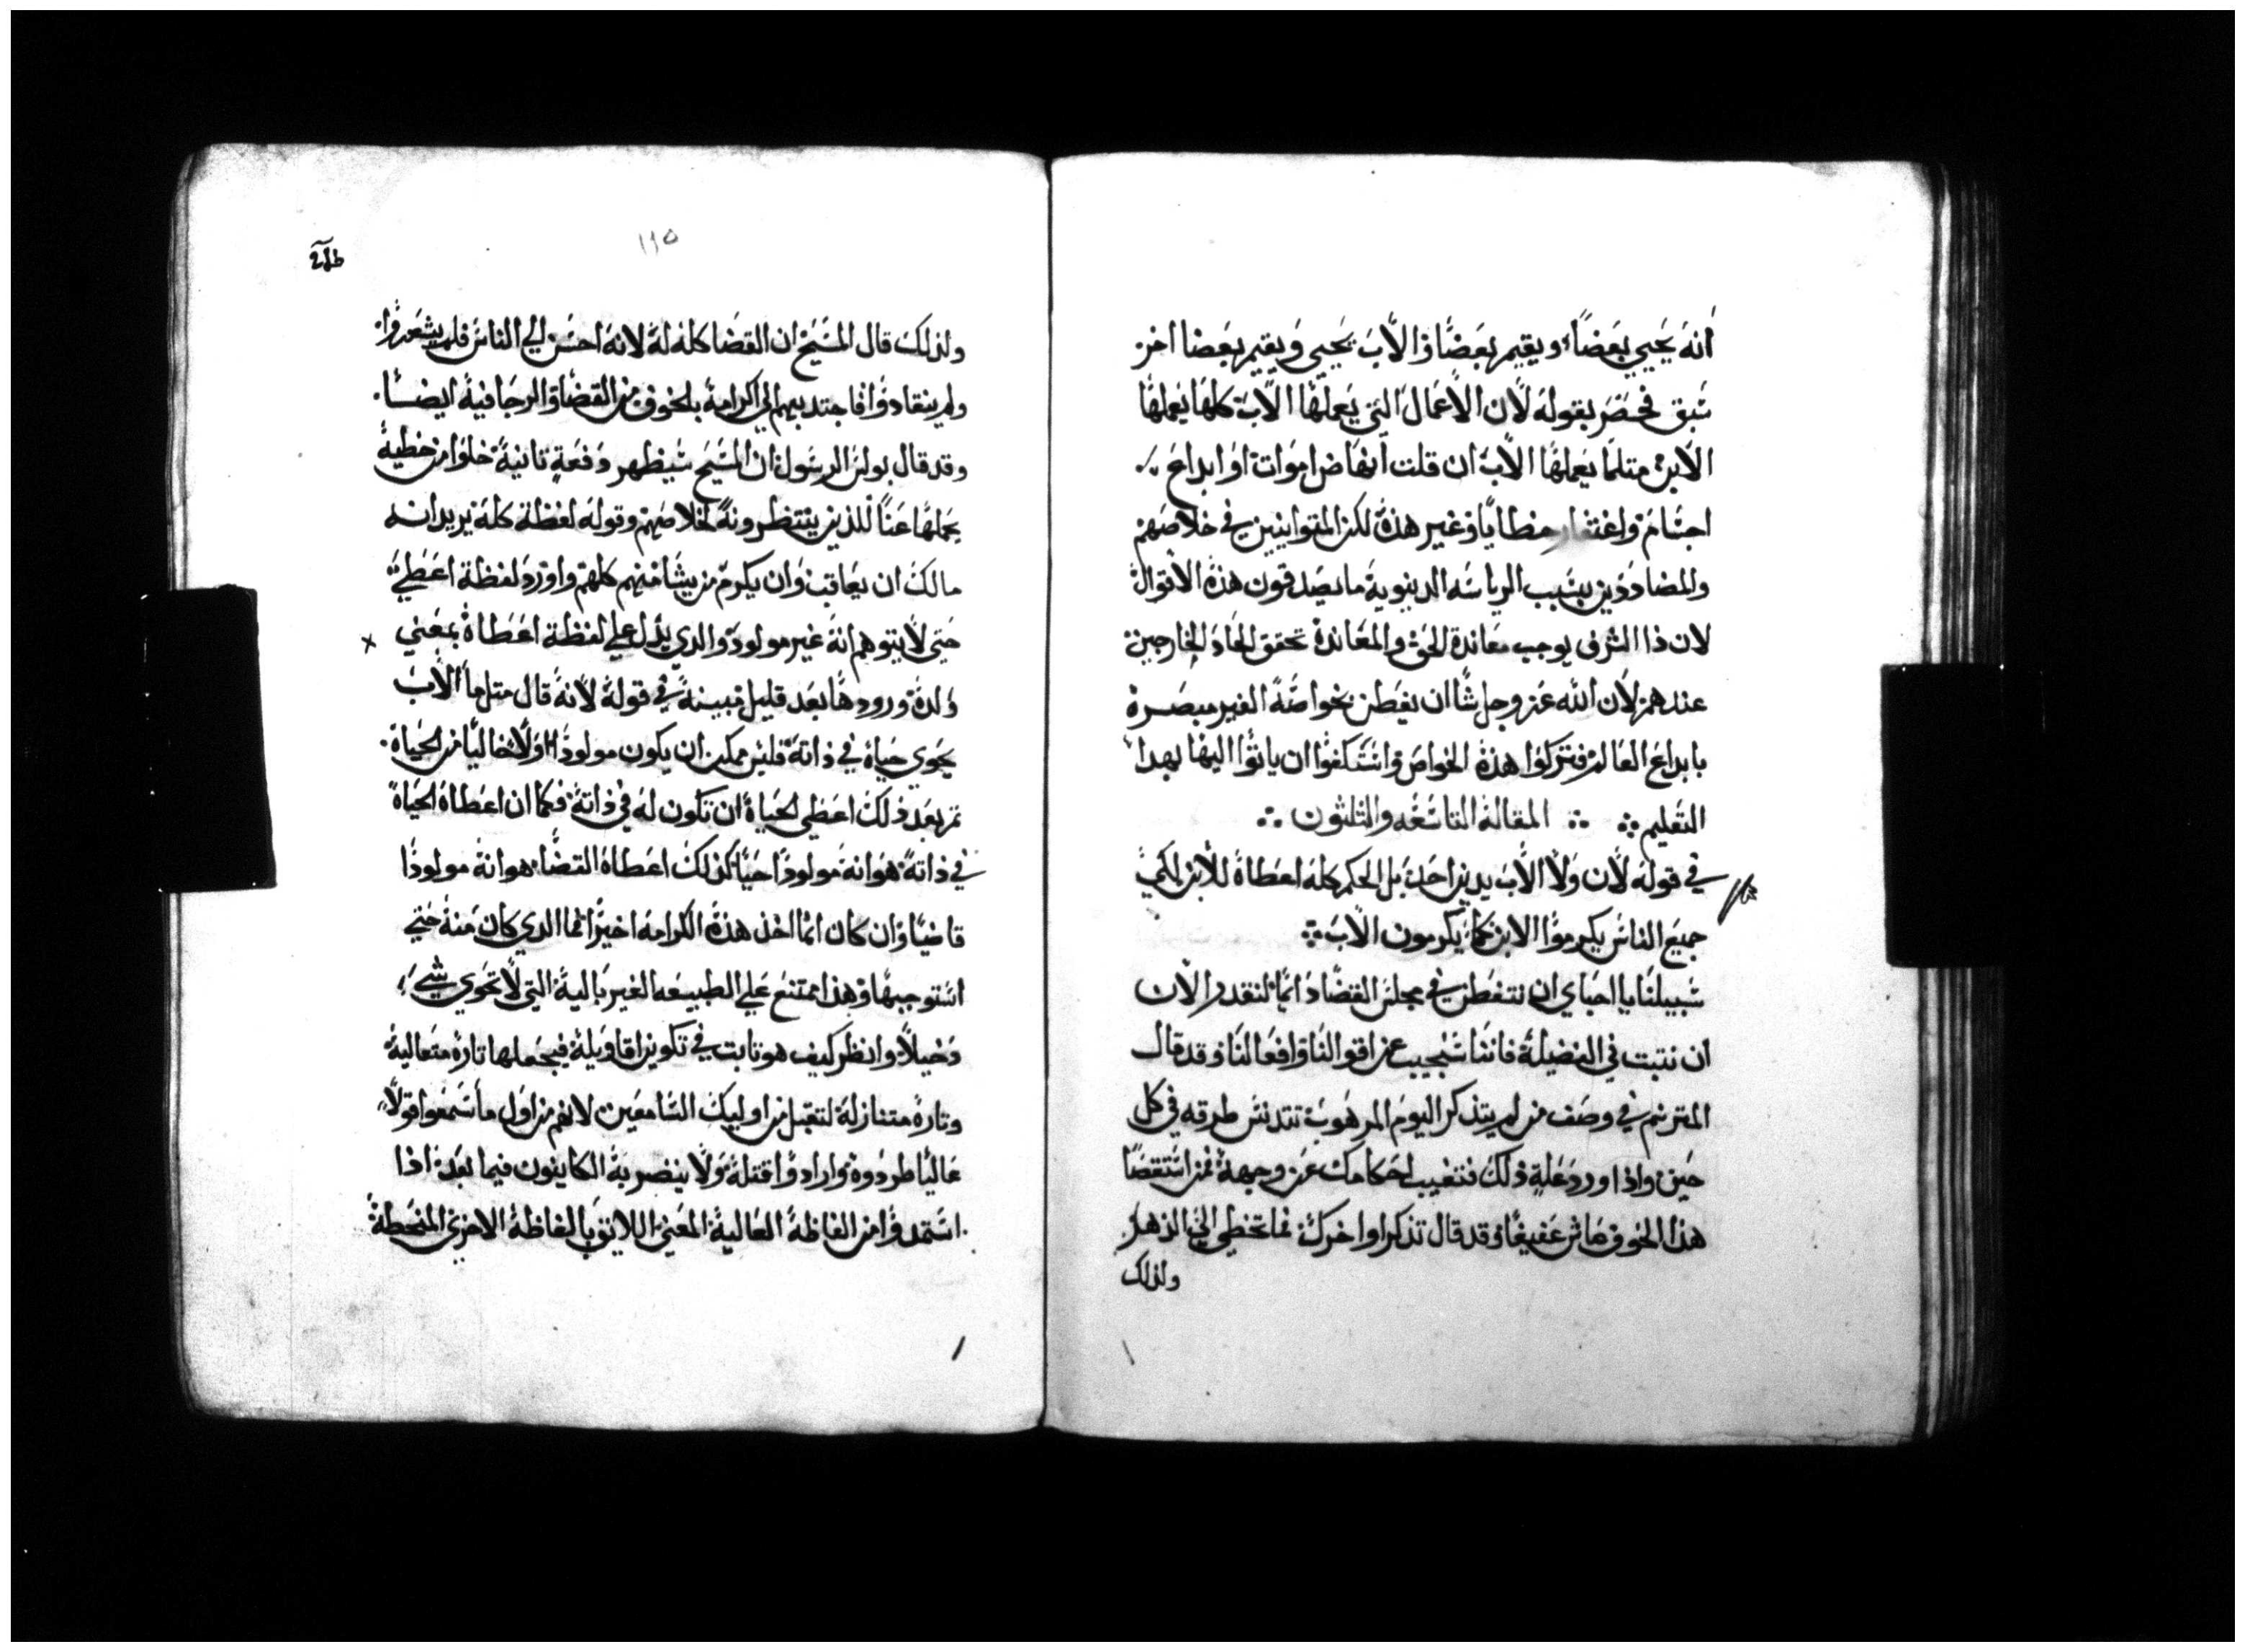 انه يحيي بعضاً، ويقيم بعضاً، والاب يحيي ويقيم بعضا اخر
سبق فحصر بقوله لان الاعمال التي يعملها الاب كلها يعملها
الابن مثلما يعملها الاب ان قلت انهاض اموات او ابداع
اجسام واغتفار خطايا وغير هذه لكن المتوانيين في خلاصهم
والمضاددين بسبب الرياسه الدنيوية ما يصدقون هذه الاقوال
لان ذا الشرف يوجب معاندة الحق والمعاندة تحقق الحاد الخارجين
عندهم لان الله عز وجل شا ان نفطن بخواصه الغير مبصرة
بابداع العالم فتركوا هذه الخواص واستنكفوا ان ياتوا اليها بهدا
التعليم ∴ ∴ المقالة التاسعه والثلثون ∴
في قوله لان ولا الاب يدين احد بل الحكم كله اعطاه للابن لكي
جميع الناس يكرموا الابن كما يكرمون الاب ∴
سبيلنا يا احباي ان نتفطن في مجلس القضا دايما لنقدر الان
ان نثبت في الفضيلة فاننا سنجيب عن اقوالنا وافعالنا وقد قال
المترنم في وصف من لم يتذكر اليوم المرهوب تتدنس طرقه في كل
حين واذا اورد علة ذلك فتغيب احكامك عن وجهه فمن استقصا
هذا الخوف عاش عفيفا وقد قال تذكر اواخرك فما تخطي الي الدهر
ولذلك
١١٥
ولذلك قال المسيح ان القضا كله له لانه احسن الي الناس فلم يشعروا
ولم ينقادوا فاجتدبهم الي اكرامه بالخوف من القضا والرجا فيه ايضا
وقد قال بولس الرسول ان المسيح سيظهر دفعة ثانية خلوا من خطية
يحملها عنا للذين ينتظرونه لخلاصهم وقوله لفظة كله يريد انه
مالك ان يعاقب وان يكرم من يشا منهم كلهم واورد لفظة اعطي
حتي لا يتوهم انه غير مولود والدي يدل علي لفظة اعطاه بمعني
ولده ورودها بعد قليل مبينة في قوله لانه قال مثلما الاب
يحوي حياة في ذاته فليس ممكن ان يكون مولودا اولا خاليا من الحياة
ثم بعد ذلك اعطي الحياة ان تكون له في ذاته فكما ان اعطاه الحياة
في ذاته هو انه مولودا حيا كذلك اعطاه القضا هو انه مولودا
قاضيا وان كان انما اخذ هذه الكرامه اخيرا فما الدي كان منه حتي
استوجبها وهذا ممتنع علي الطبيعه الغير بالية التي لا تحوي شي
دخيلا وانظر كيف هو ثابت في تكوين اقاويله فيجعلها تارة متعالية
وتارة متنازلة لتقبل من اوليك السامعين لانهم من اول ما سمعوا قولا
عاليا طردوه وارادوا قتله ولا ينضر به الكاينون فيما بعد اذا
استمدوا من الفاظه العالية المعني اللايق بالفاظه الاخري المنحطة